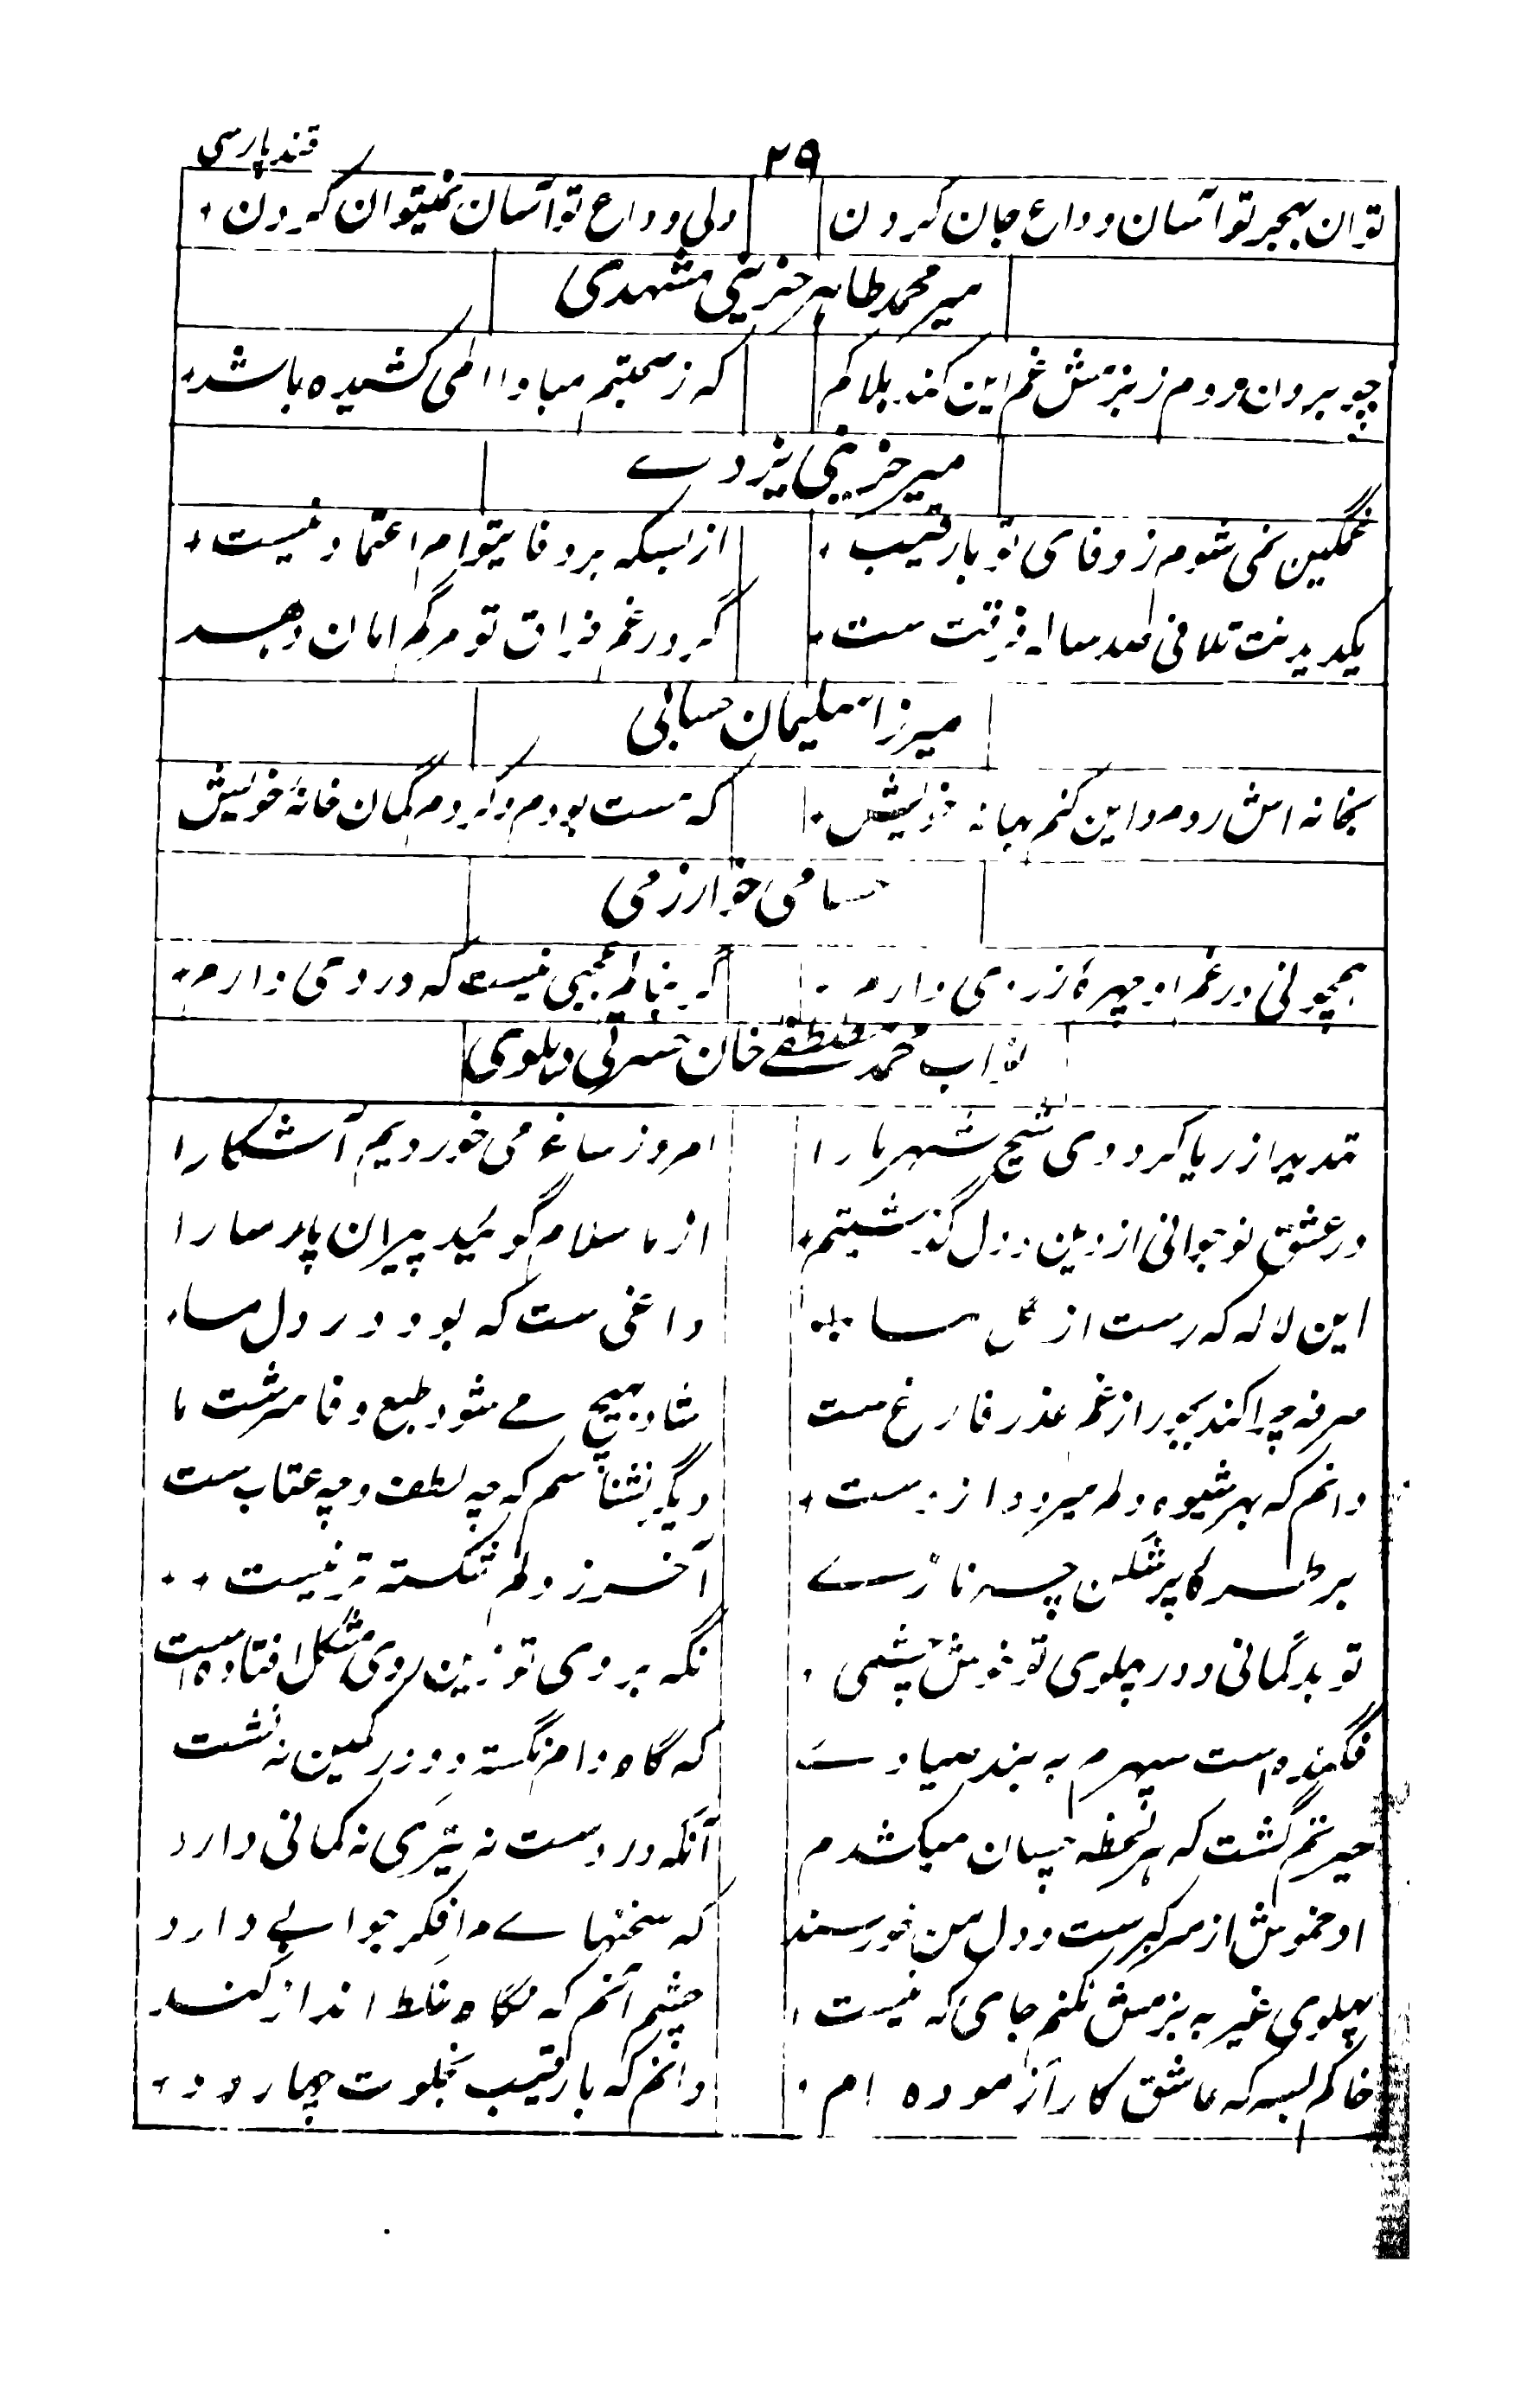 ۲۹ قند پارسی
توان بهجر تو آسان وداع جان کردن ولی وداع تو آسان نمیتوان کردن
میر محمد طاهر حزینی مشهدی
چو بیرون روم ز بزمش غم این کند هلاکم که ز صحبتم مبادا المی کشیده باشد
میر حزینی یزدے
غمگین نمی شوم ز وفای تو با رقیب از بسکه بر وفا یتوام اعتماد نیست
یکدیدنت تلافی صد ساله فرقت ست گر در غم فراق تو مرگم امان دهد
میرزا سلیمان حسابی
بخانه اش روم و این کنم بهانه خویش که مست بودم و کردم گمان خانۀ خویش
حسامی خوارزمی
همچونی در غم او چهرۀ زردی دارم گر بنالم عجبی نیست که دردی دارم
نواب محمد مصطفے خان حسرتی دہلوی
تدبیر از ریا کرد دی شیخ شهر ما را امروز ساغر می خوردیم آشکارا
در عشق نوجوانی از دین و دل گذشتیم از ما سلام گوئید پیران پارسا را
این لاله که رست از گل ما داغی ست که بود در دل ما
صرفه چرا کند بجور از غم عذر فارغ ست شاد بہیچ مے شود طبع وفا سرشت ما
دانم که بهر شیوه دلم میرود از دست دیگر نشناسم که چه لطف و چه عتاب ست
بر طرۀ پر شکن چه نازے آخر ز دلم شکسته تر نیست
تو بدگمانی و در پهلوی تو خوش چشمی نگه بروی تو زین روی مشکل افتاده است
فگنده است سپهرم به بند صیادے که گاه دام نگسترد و در کمین نه نشست
حیرتم کشت که هر لحظه چسان میکشدم آنکه در دست نه تیری نه کمانی دارد
او خموش از سر کبرست و دل من خورسند که سخنهاے مرا فکر جوابے دارد
پهلوی غیر به بزمش نکنم جای که نیست چشم آنم که نگاه غلط انداز کند
خاکم بسر که عاشق کار آزموده ام دانم که با رقیب بخلوت چها رود